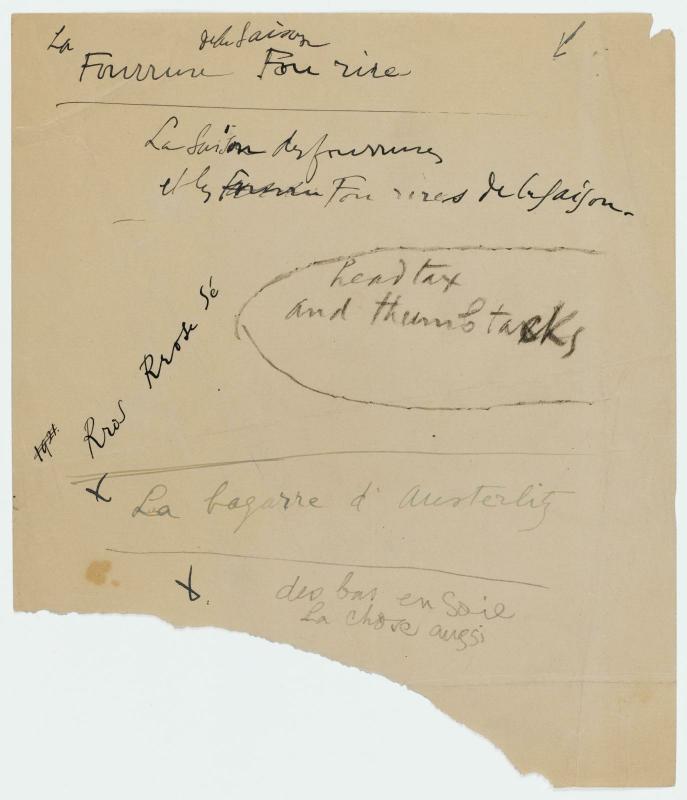 de la Saison
La Fourrure Fou rire
La Saison des fourrures
et les Fou rires de la Saison.
head tax
and thumb tacks
Rros Rrose Sé
1921.
La bagarre d'Austerlitz
des bas en Soie
La chose aussi